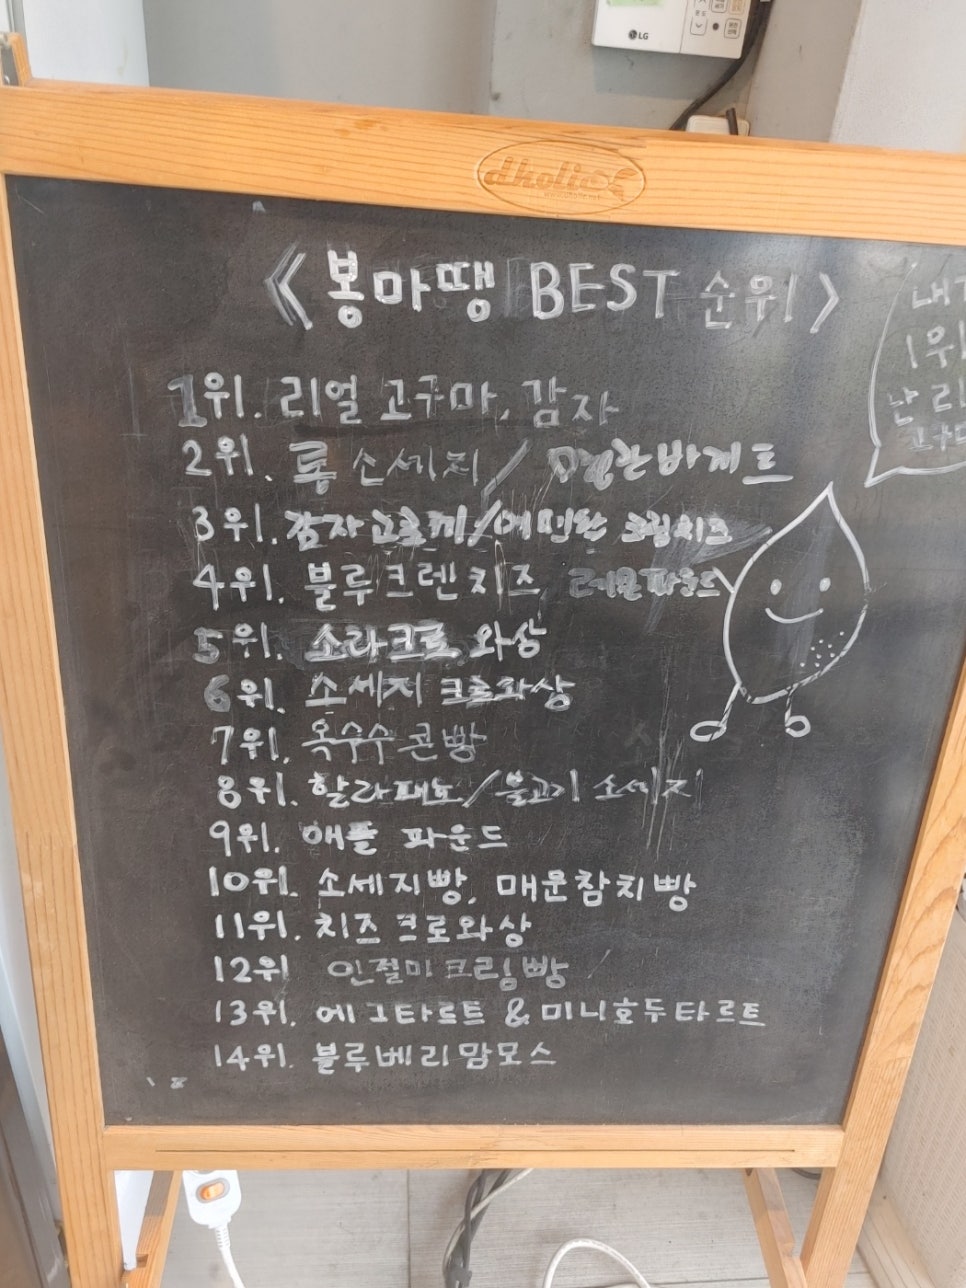 LG
dholic
《봉마땡 BEST 순위》
내가
1위
난 리
고구마
1위. 리얼 고구마, 감자
2위. 롱 소세지 / 명란바게트
3위. 감자고로끼/ 크림치즈
4위. 블루크렌치즈 레몬파운드
5위. 소라크로와상
6위. 소세지 크로와상
7위. 옥수수콘빵
8위. 할라피뇨/불고기 소세지
9위. 애플 파운드
10위. 소세지빵, 매운참치빵
11위. 치즈 크로와상
12위 인절미크림빵
13위. 에그타르트 & 미니호두타르트
14위. 블루베리맘모스